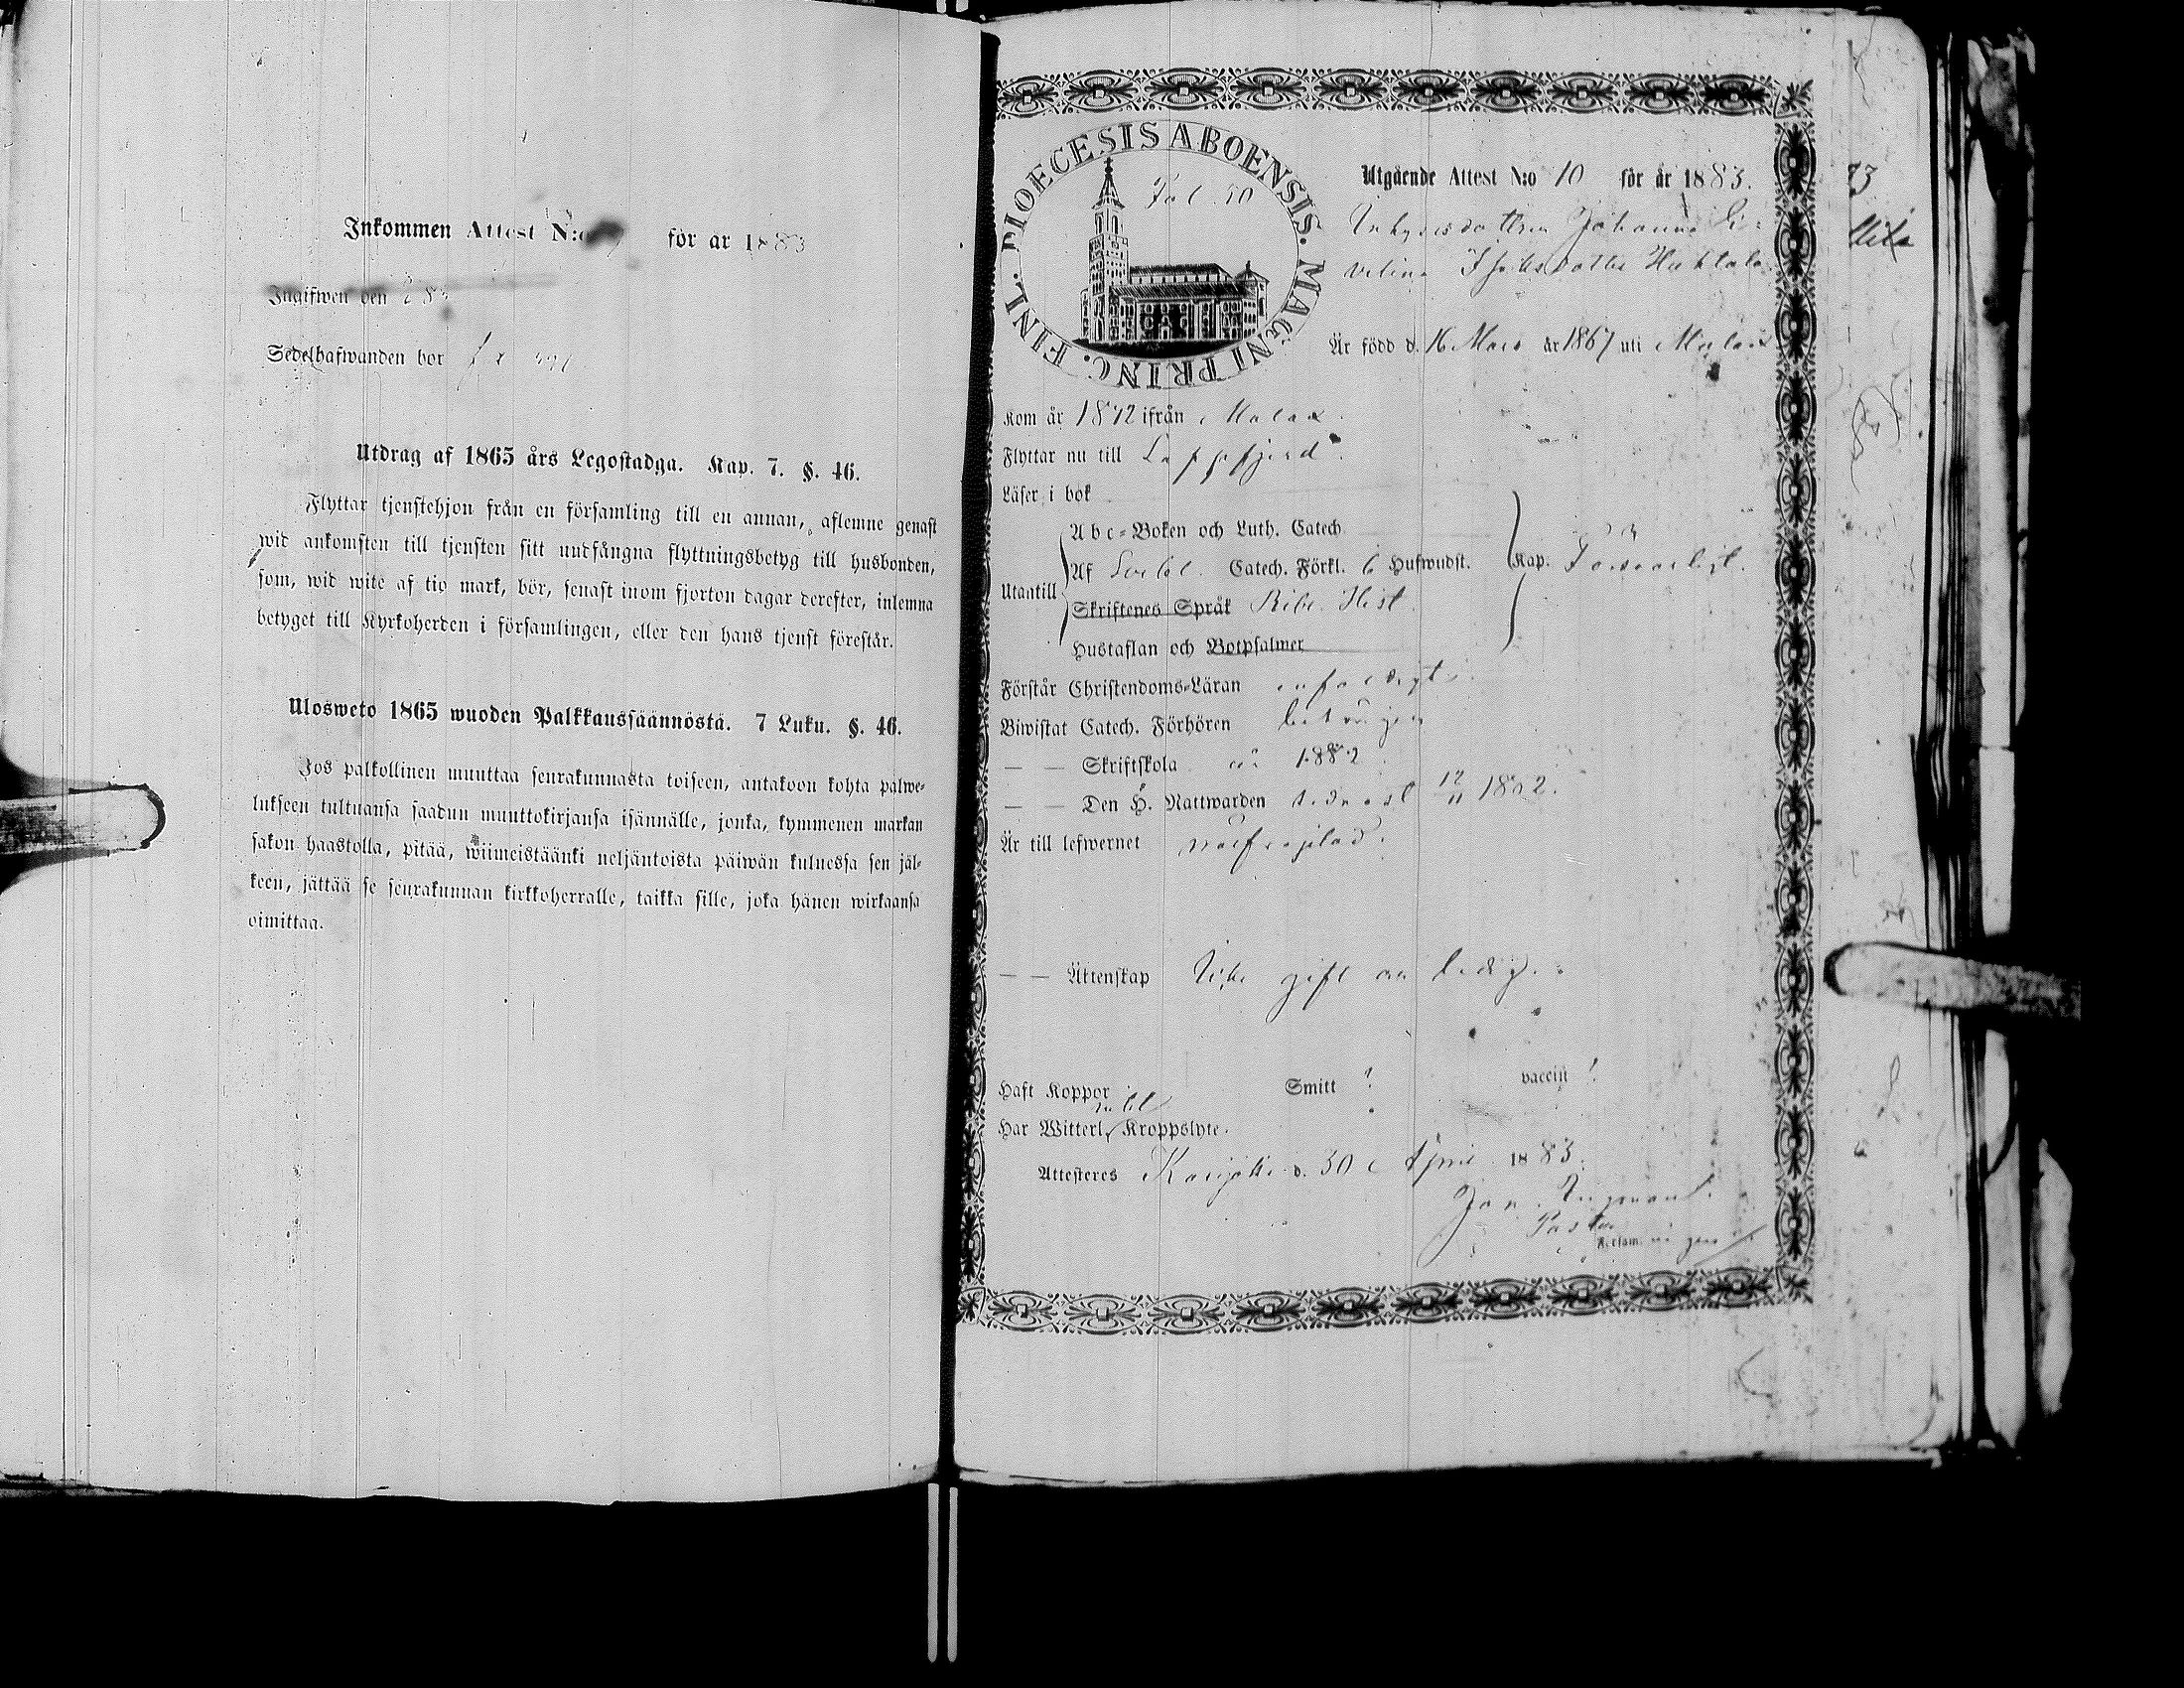 Inkommen Attest N:o för år 1883
Ingifwen den
Sedelhafwanden bor
Utdrag af 1865 års Legostadga. Kap. 7. §. 46.
Flyttar tjenstehjon från en församling till en annan, aflemne genast
wid ankomsten till tjensten sitt undfångna flyttningsbetyg till husbonden,
som, wid wite af tio mark, bör, senast inom fjorton dagar derefter, inlemna
betyget till Kyrkoherden i församlingen, eller den hans tjenst förestår.
Ulosweto 1865 wuoden Palkkaussäännöstä. 7 Luku. §. 46.
Jos palkollinen muuttaa seurakunnasta toiseen, antakoon kohta palwe-
lukseen tultuansa saadun muuttokirjansa isännälle, jonka, kymmenen markan
sakon haastolla, pitää, wiimeistäänki neljäntoista päiwän kuluessa sen jäl-
keen, jättää se seurakunnan kirkkoherralle, taikka sille, joka hänen wirkaansa
oimittaa.
DIOECESIS ABOENSIS. MAGNI PRINC. FINL.
Fol. 50
Utgående Attest N:o 10 för år 1883.
Inhysesdottren Johanna E=
velina
Är född d. 16 Mars år 1867 uti Malax
Kom år 1872 ifrån Malax.
Flyttar nu till Lappfjerd.
Läser i bok
Abc-Boken och Luth. Catech.
Utantill Af Catech. Förkl. 6 Hufwudst. Kap. Försvarligt.
Skriftenes Språk Bibl. Hist.
Hustaflan och Botpsalmer
Förstår Christendoms-Läran enfaldigt
Biwistat Catech. Förhören
— — Skriftskola år 1882
— — Den H. Nattwarden sednast 12/11 1882.
Är till lefwernet oförvitlig
— — Ättenskap Icke gift an ledig.
Haft Koppor Smitt ? vaccit ?
Har Witterl. Kroppslyte.
Attesteres Karijoki d. 30 April 1883.
Pastor